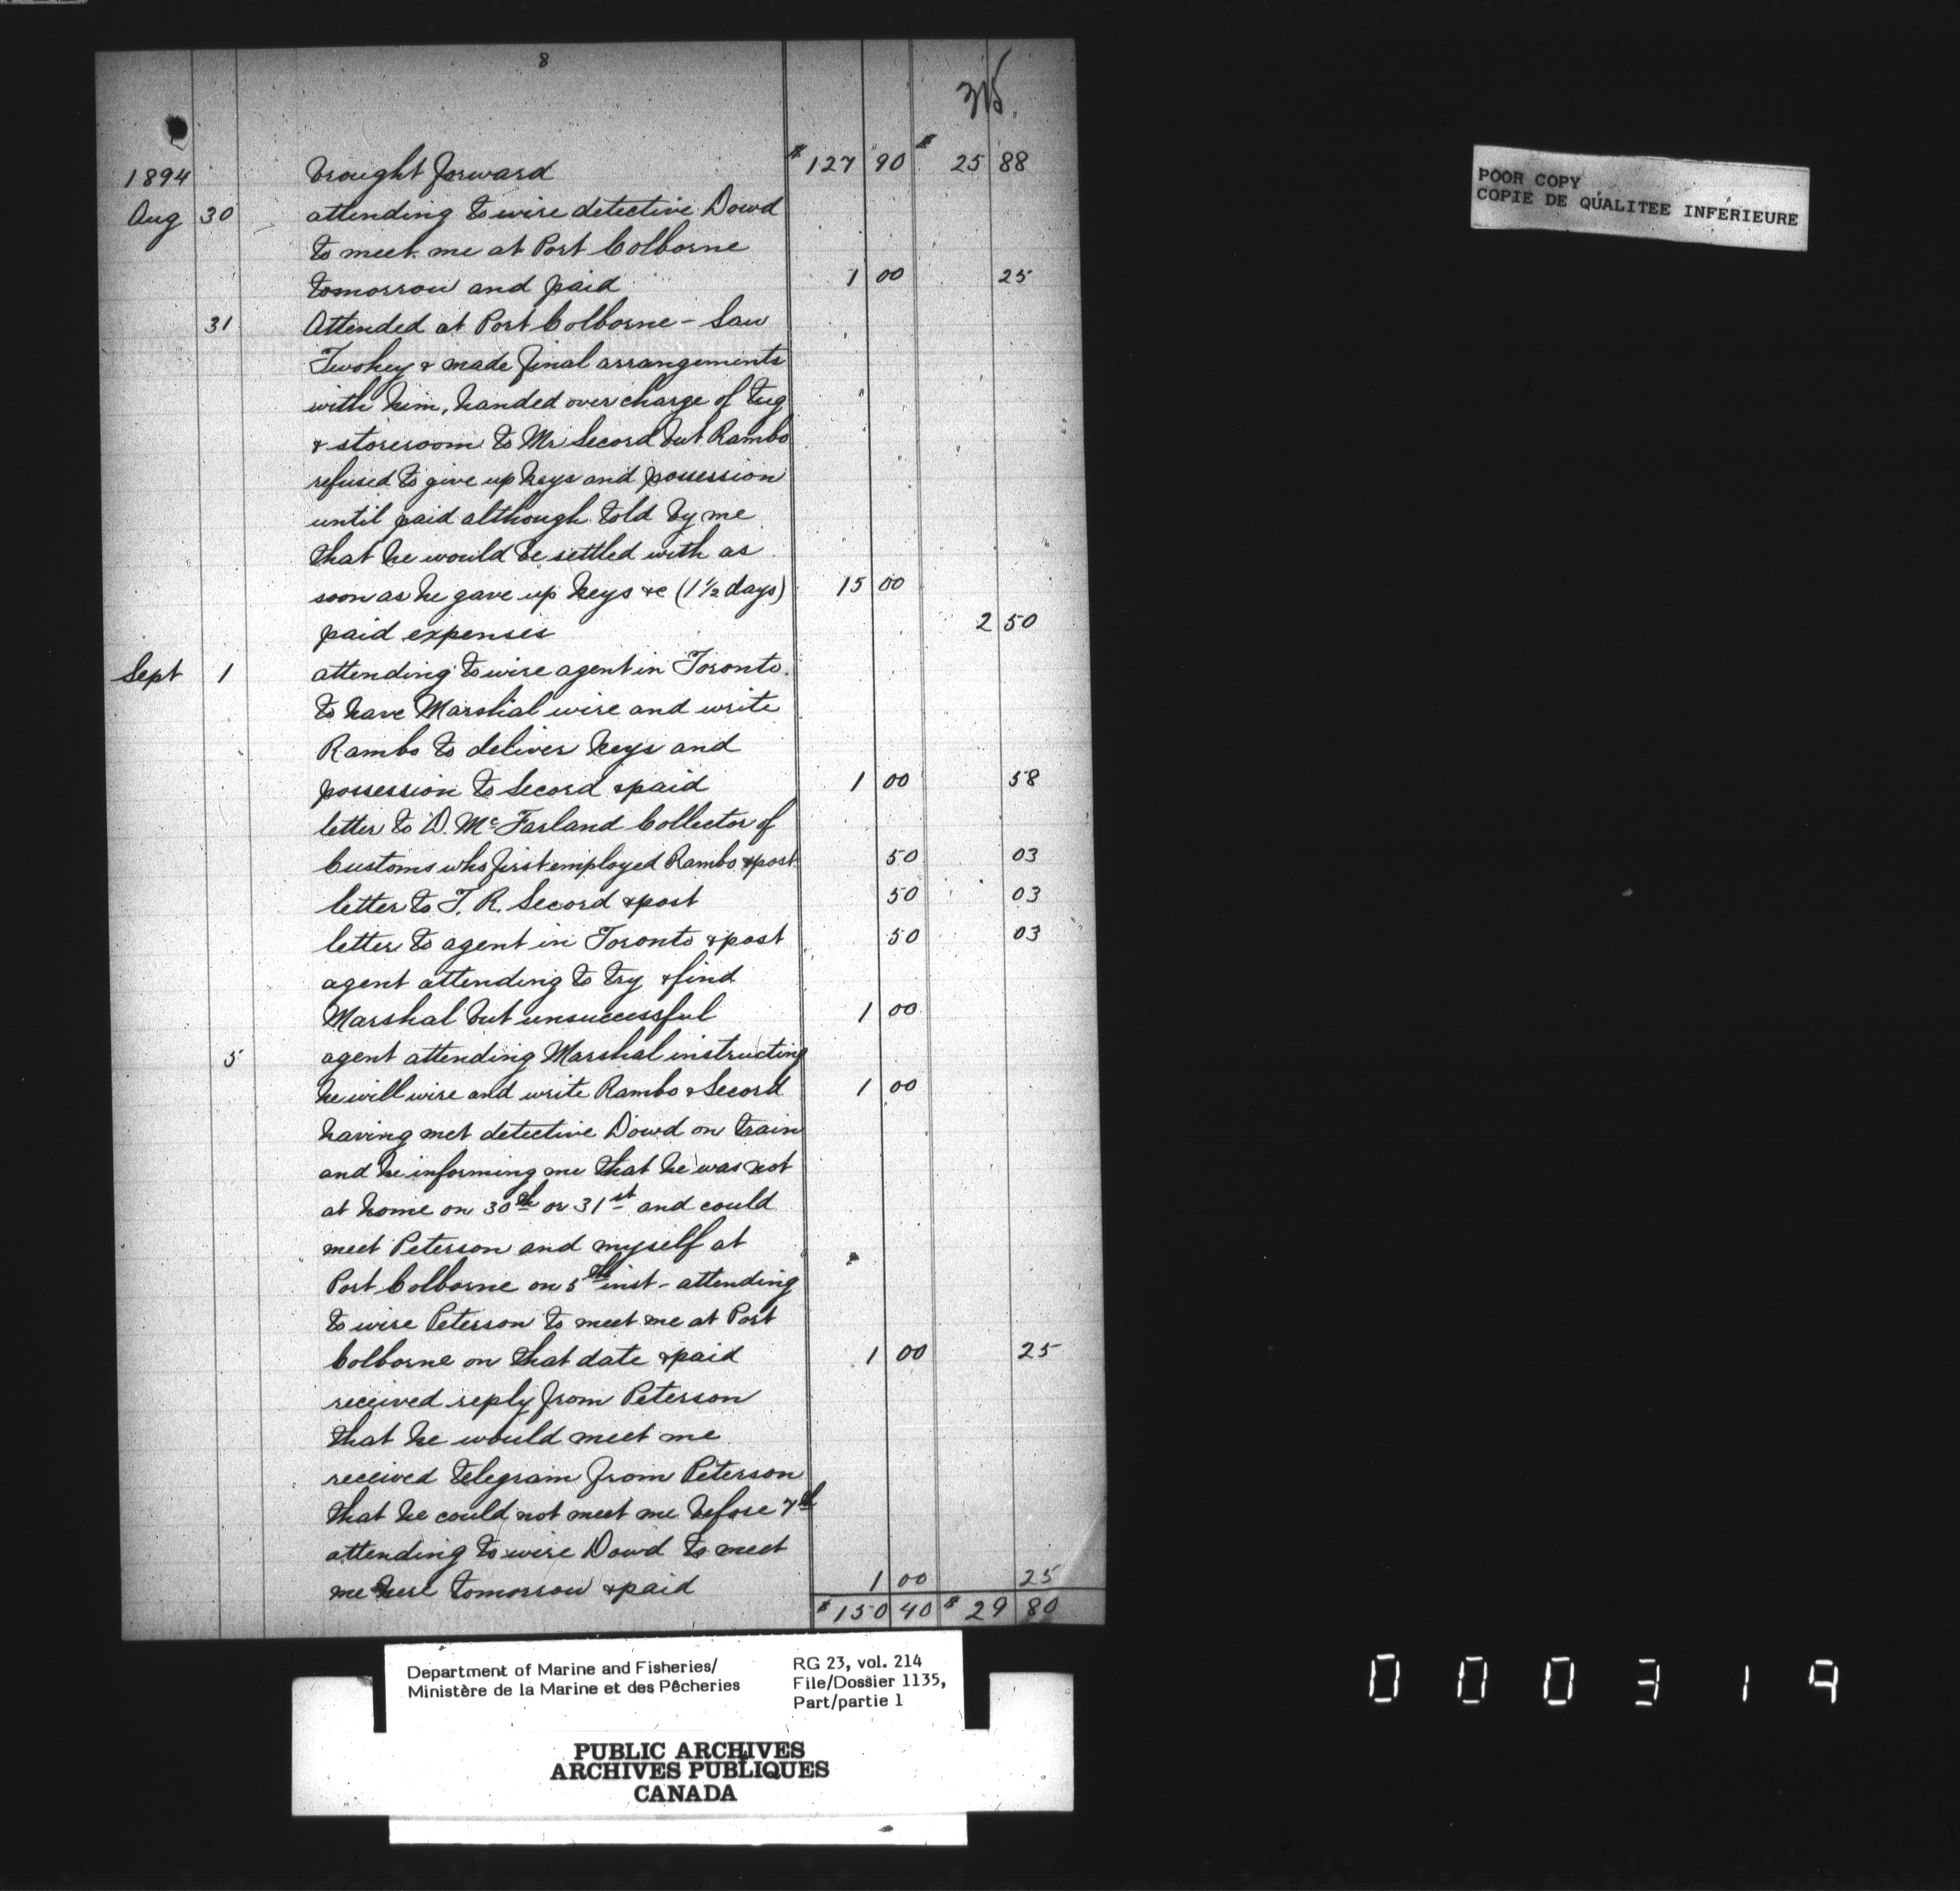 8
315.
1894 brought forward $127 90 $25 88
Aug 30 attending to wire detective Dowd
to meet me at Port Colborne
tomorrow and paid 1 00 25
31 Attended at Port Colborne - Saw
Twohey & made final arrangements
with him, handed over charge of tug
& storeroom to Mr Secord but Rambo
refused to give up keys and possession
until paid although told by me
that he would be settled with as
soon as he gave up keys &c (1 1/2 days) 15 00
paid expenses 2 50
Sept 1 attending to wire agent in Toronto.
to have Marshal wire and write
Rambo to deliver keys and
possession to Secord & paid 1 00 58
letter to D. McFarland Collector of
Customs who first employed Rambo & post 50 03
letter to F. R. Secord & post 50 03
letter to agent in Toronto & post 50 03
agent attending to try & find
Marshal but unsuccessful 1 00
5 agent attending Marshal instructing
he will wire and write Rambo & Secord 1 00
having met detective Dowd on train
and he informing me that he was not
at home on 30th or 31st and could
meet Peterson and myself at
Port Colborne on 5th inst - attending
to wire Peterson to meet me at Port
Colborne on that date & paid 1 00 25
received reply from Peterson
that he would meet me
received telegram from Peterson
that he could not meet me before 7th
attending to wire Dowd to meet
me here tomorrow & paid 1 00 25
$150 40 $29 80
POOR COPY
COPIE DE QUALITEE INFERIEURE
Department of Marine and Fisheries/
Ministère de la Marine et des Pêcheries
RG 23, vol. 214
File/Dossier 1135,
Part/partie 1
PUBLIC ARCHIVES
ARCHIVES PUBLIQUES
CANADA
000319